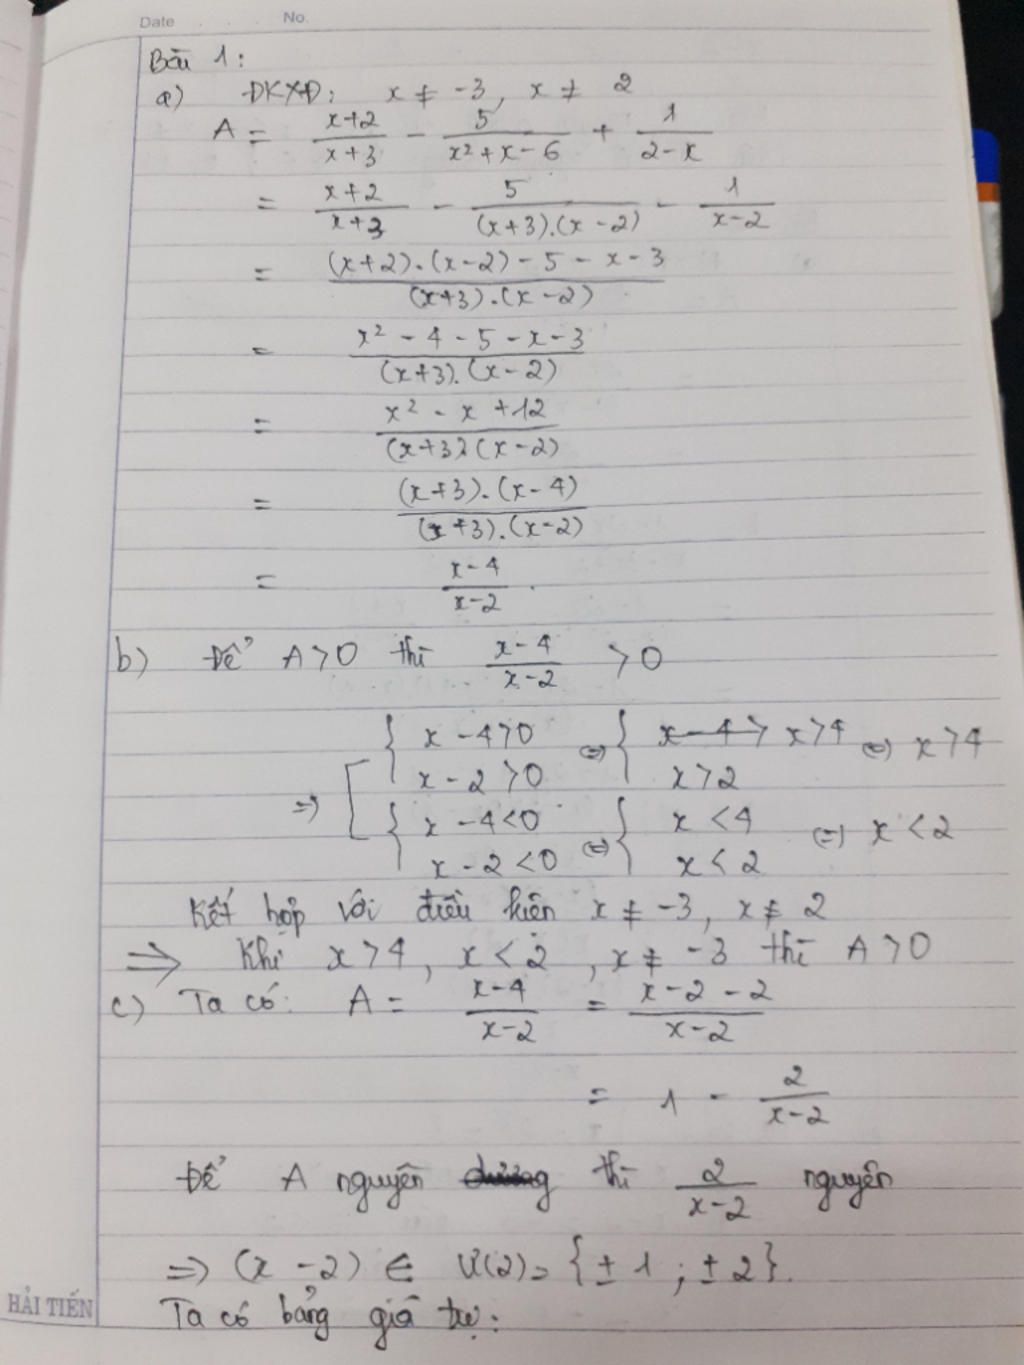 Date . . . No.
Bài 1:
a) ĐKXĐ: x ≠ -3, x ≠ 2
A = (x+2)/(x+3) - 5/(x²+x-6) + 1/(2-x)
= (x+2)/(x+3) - 5/((x+3).(x-2)) - 1/(x-2)
= ((x+2).(x-2) - 5 - x - 3)/((x+3).(x-2))
= (x² - 4 - 5 - x - 3)/((x+3).(x-2))
= (x² - x + 12)/((x+3)(x-2))
= ((x+3).(x-4))/((x+3).(x-2))
= (x-4)/(x-2).
b) Để A > 0 thì (x-4)/(x-2) > 0
=> [ { x - 4 > 0 <=> { x - 4 > x > 4 <=> x > 4
x - 2 > 0 x > 2
{ x - 4 < 0 <=> { x < 4 <=> x < 2
x - 2 < 0 x < 2
Kết hợp với điều kiện x ≠ -3, x ≠ 2
=> Khi x > 4, x < 2, x ≠ -3 thì A > 0
c) Ta có: A = (x-4)/(x-2) = (x-2-2)/(x-2)
= 1 - 2/(x-2)
Để A nguyên dương thì 2/(x-2) nguyên
=> (x - 2) ∈ Ư(2) = {±1; ±2}.
Ta có bảng giá trị:
HẢI TIẾN